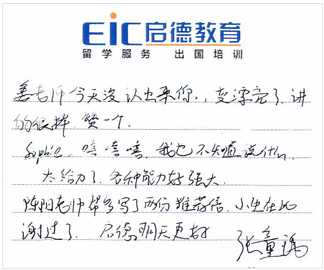 EIC启德教育
留学服务 出国培训
姜老师今天没认出来你,变漂亮了,讲
的很棒,赞一个
Sophie,嘻嘻嘻,我也不知道说什么
太给力了,各种能力好强大
陈阳老师帮写了两份推荐信,小生在此
谢过了。启德明天更好
张童